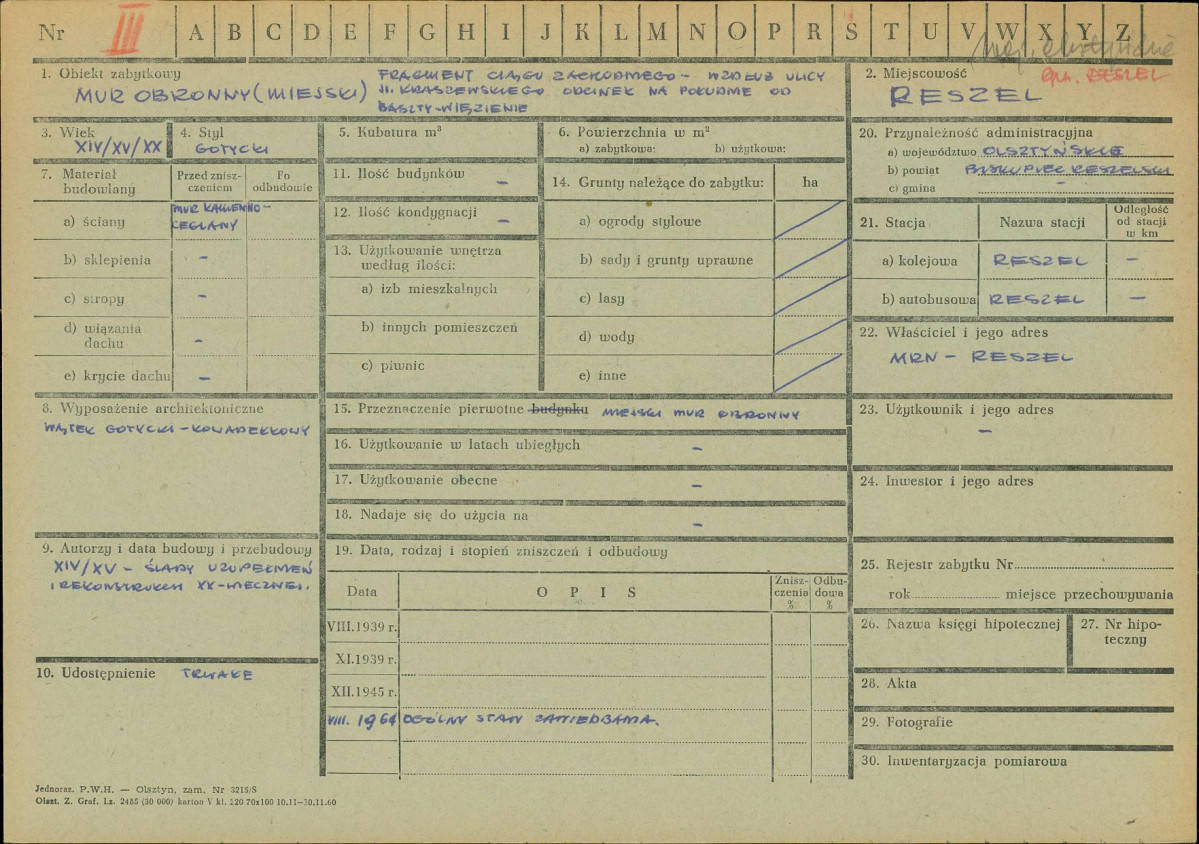 Nr III A B C D E F G H I J K L M N O P R S T U V W X Y Z
woj. olsztyńskie
gm. RESZEL
1. Obiekt zabytkowy
MUR OBRONNY (MIEJSKI)
FRAGMENT CIĄGU ZACHODNIEGO - WZDŁUŻ ULICY
KRASZEWSKIEGO ODCINEK NA POŁUDNIE OD
BASZTY-WIĘZIENIE
2. Miejscowość
RESZEL
3. Wiek
XIV/XV/XX
4. Styl
GOTYCKI
5. Kubatura m³
6. Powierzchnia w m²
a) zabytkowa: b) użytkowa:
7. Materiał budowlany
Przed zniszczeniem
Po odbudowie
a) ściany
MUR KAMIENNO-
CEGLANY
b) sklepienia -
c) stropy -
d) wiązania dachu -
e) krycie dachu -
8. Wyposażenie architektoniczne
WĄTEK GOTYCKI - KOWADEŁKOWY
9. Autorzy i data budowy i przebudowy
XIV/XV - ŚLADY UZUPEŁNIEŃ
I REKONSTRUKCJI XX-WIECZNEJ.
10. Udostępnienie TRWAŁE
11. Ilość budynków -
12. Ilość kondygnacji -
13. Użytkowanie wnętrza
według ilości:
a) izb mieszkalnych
b) innych pomieszczeń
c) piwnic
14. Grunty należące do zabytku: ha
a) ogrody stylowe
b) sady i grunty uprawne
c) lasy
d) wody
e) inne
15. Przeznaczenie pierwotne budynku MIEJSKI MUR OBRONNY
16. Użytkowanie w latach ubiegłych -
17. Użytkowanie obecne -
18. Nadaje się do użycia na -
19. Data, rodzaj i stopień zniszczeń i odbudowy
Data
O P I S
Zniszczenia %
Odbudowa %
VIII.1939 r.
XI.1939 r.
XII.1945 r.
VIII. 1961 OGÓLNY STAN ZANIEDBANIA.
20. Przynależność administracyjna
a) województwo OLSZTYŃSKIE
b) powiat BISKUPIEC RESZELSKI
c) gmina -
21. Stacja
Nazwa stacji
Odległość
od stacji
w km
a) kolejowa RESZEL -
b) autobusowa RESZEL -
22. Właściciel i jego adres
MRN - RESZEL
23. Użytkownik i jego adres
-
24. Inwestor i jego adres
25. Rejestr zabytku Nr
rok miejsce przechowywania
26. Nazwa księgi hipotecznej
27. Nr hipo-
teczny
28. Akta
29. Fotografie
30. Inwentaryzacja pomiarowa
Jednoraz. P.W.H. — Olsztyn, zam. Nr 3215/S
Olszt. Z. Graf. Lz. 2485 (30 000) karton V kl. 220 70x100 10.11—30.11.60